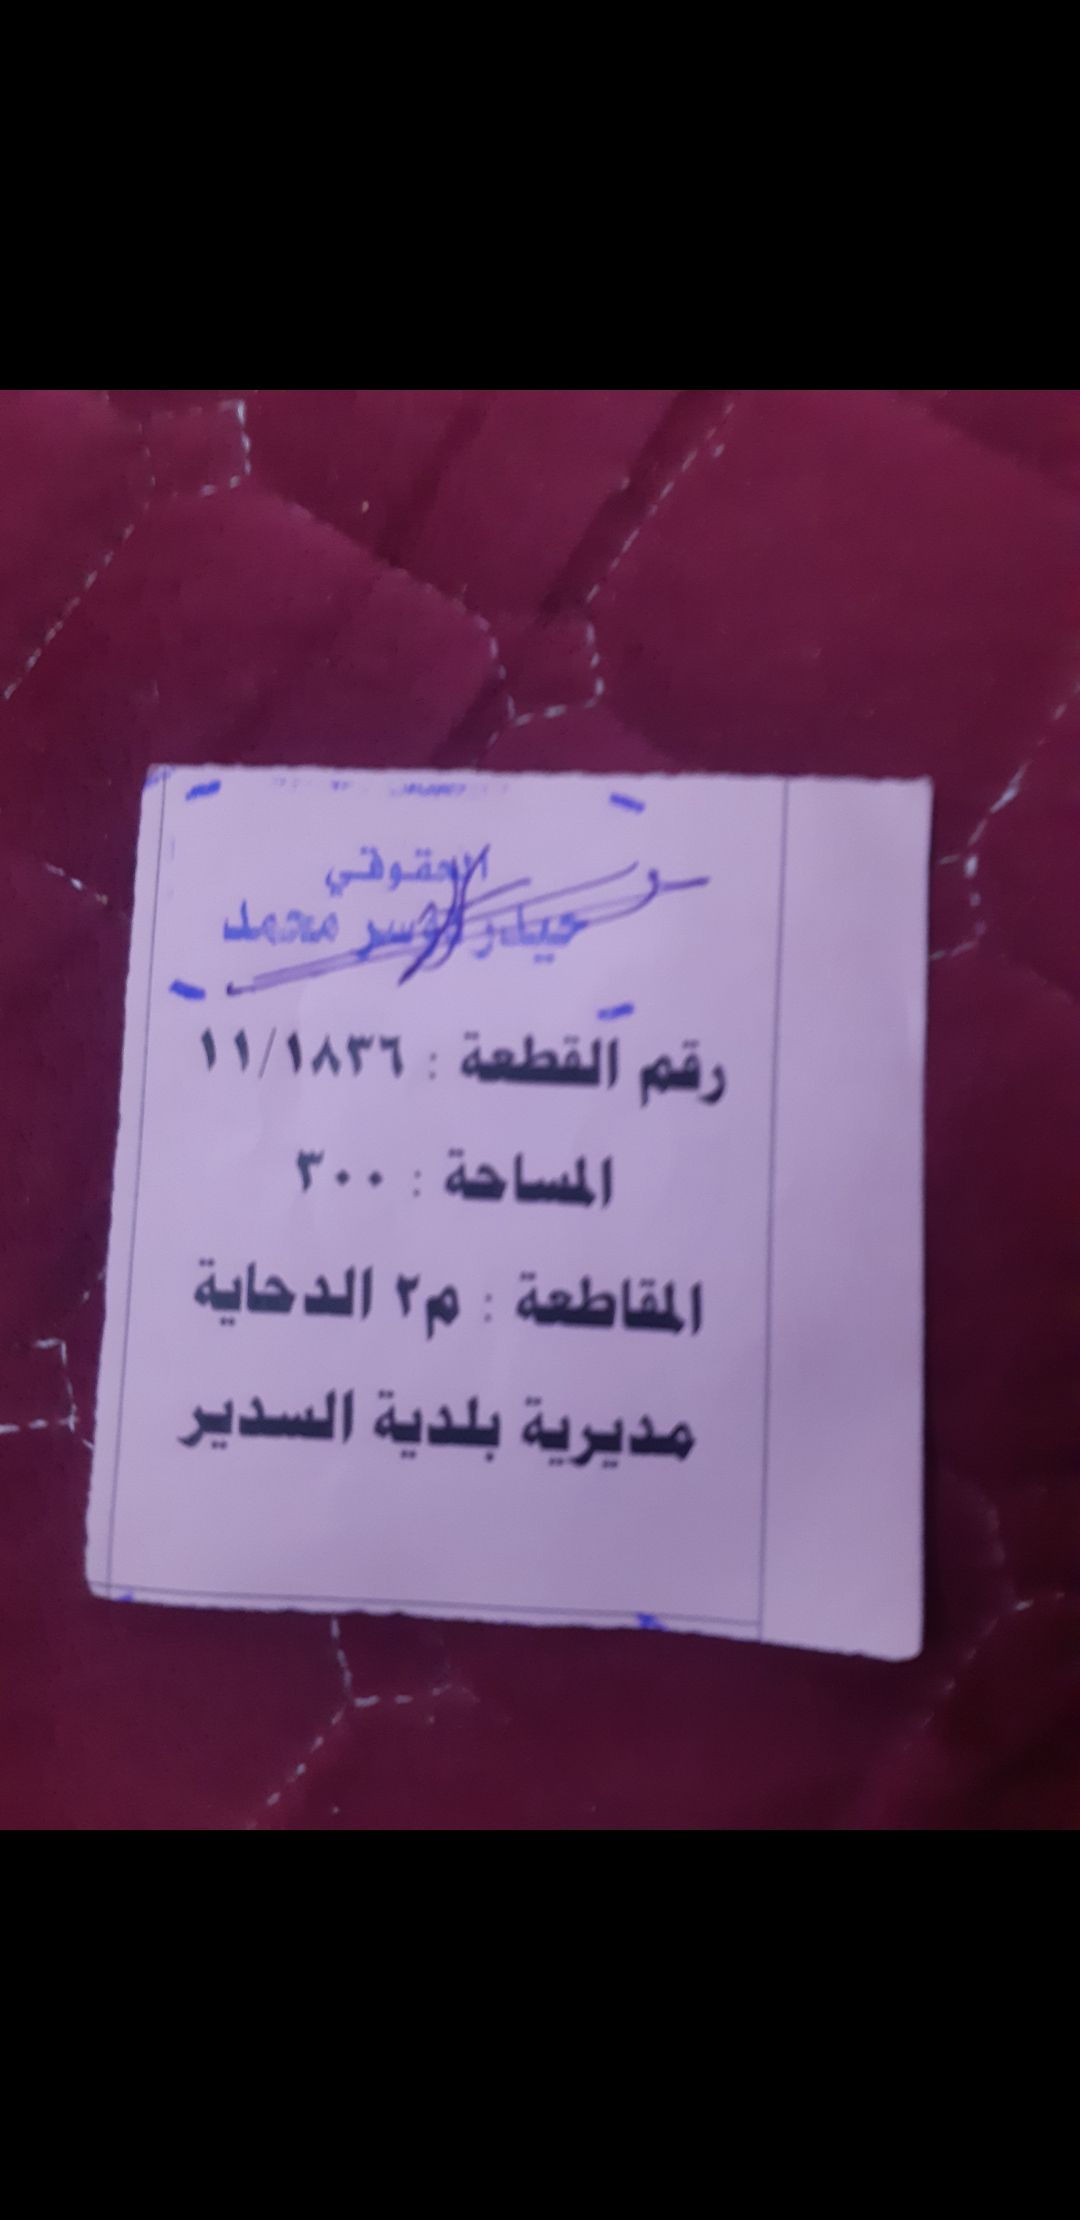 الحقوقي
حيدر ياسر محمد
رقم القطعة : ١١/١٨٣٦
المساحة : ٣٠٠
المقاطعة : م٢ الدحاية
مديرية بلدية السدير